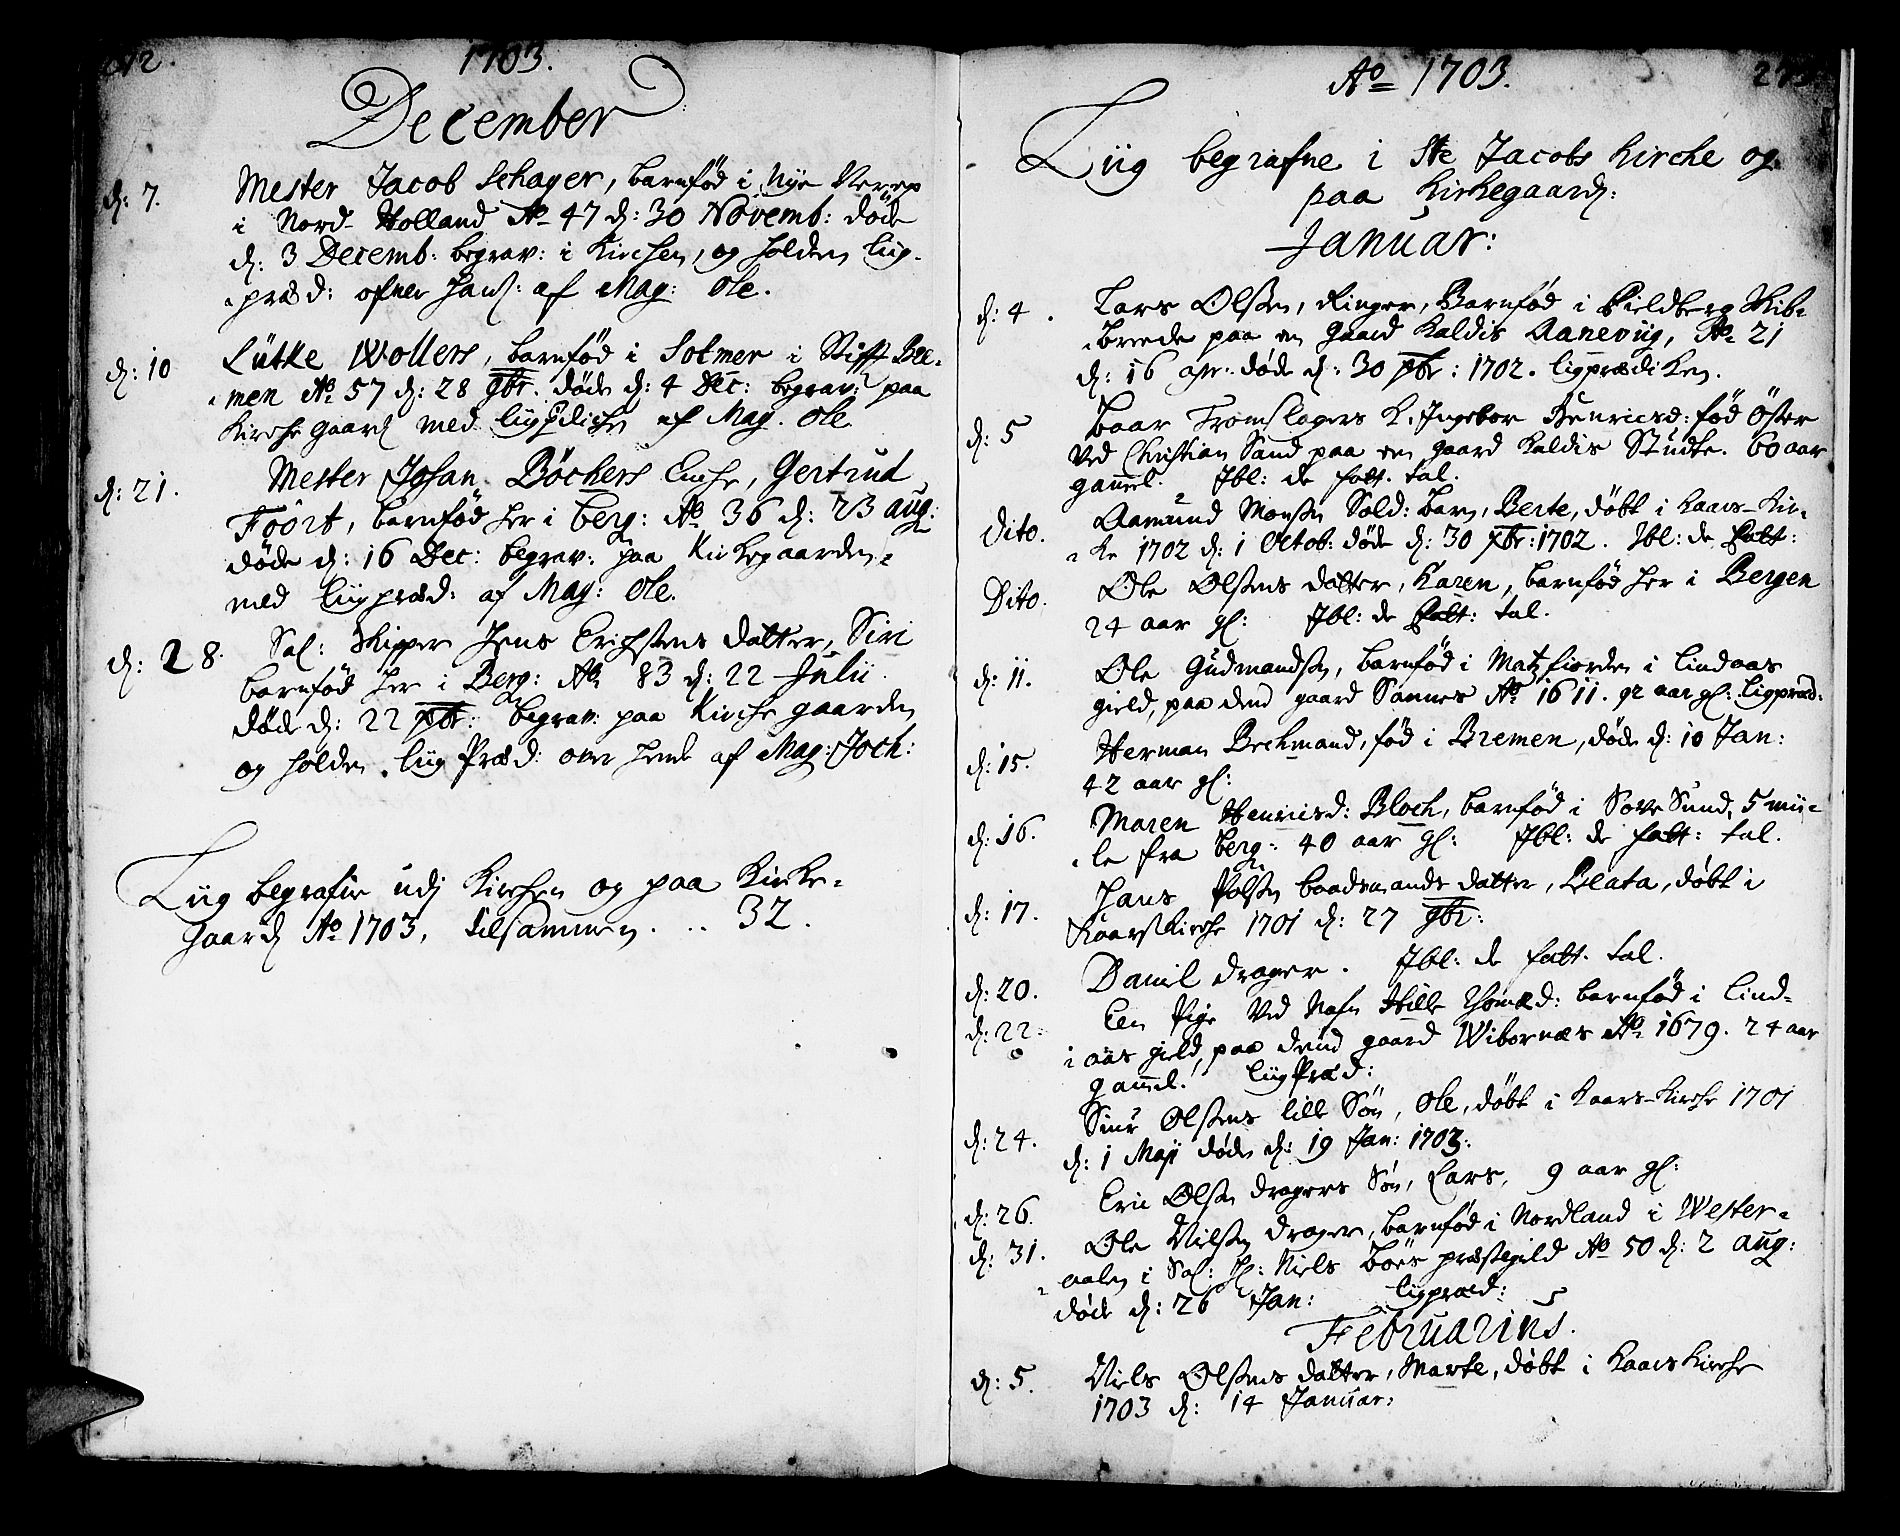 1703.
December
d: 7. Mester Jacob Schager, barnfød i Nye Verrep
i Nord-Holland Ao 47 d: 30 Novemb: døde
d: 3 Decemb: begrav: i Kirchen, og holden liig-
præd: ofver hans: af Mag: Ole.
d: 10 Lütke Wollers, barnfød i Solmer i Stifft Bre-
men Ao 57 d: 28 9br. døde d: 4 Dec: begrav: paa
Kirche gaard med af Mag. Ole
d: 21. Mester Johan Böchers Enche, Gertrud
Foört, barnfød her i berg: Ao 36 d: 23 aug:
døde d: 16 Dec: begrav: paa Kirkegaarden
med liigpræd: af Mag: Ole.
d: 28. Sal: Skipper Jens Erichsens datter, Siri
barnfød her i Berg: Ao 83 d: 22 Julii.
døde d: 22 xbr: begrav: paa Kirche gaarden
og holden liig Præd: over hende af Mag: Joch:
Liig begrafne udj Kirchen og paa Kirke-
gaard Ao 1703, tilsammen . .. 32.
Ao 1703. 273
Liig begrafne i Ste Jacobs Kirche og
paa Kirkegaard:
Januar:
d: 4. Lars Olsen, Ringer, Barnfød i Skib-
brede paa en gaard kaldis Aanevüg, Ao 21
d: 16 apr. døde d: 30 xbr: 1702. ligprædiken.
d: 5 Baar Tromslagers K. Ingebor Henricsd: fød öster
ved Christian Sand paa en gaard kaldis Studte. 60 aar
gammel. Ibl: de fatt. tal.
Dito. Aamund Monsen Sold: barn, Berte, døbt i Kaars-Kir-
ke 1702 d: 1 Octob: døde d: 30 xbr: 1702. Ibl: de fatt:
Dito. Ole Olsens datter, Karen, barnfød her i Bergen
24 aar gl: Ibl: de fatt: tal.
d: 11. Ole Gudmandsen, barnfød i Matzfiorden i Lindaas
gield, paa dend gaard Sannes Ao 1611. 92 aar gl: Ligpræd:
d: 15. Herman Bechmand, fød i Bremen, døde d: 10 Jan:
42 aar gl:
d: 16. Maren Henricsd: Bloch, barnfød i Sove Sund, 5 mii-
le fra berg: 40 aar gl: Ibl: de fatt: tal.
d: 17. Hans Polsen baadsmands datter, Beata, døbt i
Kaars Kirche 1701 d: 27 9br:
d: 20. Daniel drager. Ibl: de fatt. tal.
d: 22: Een Pige ved Nafn Hille Thomæd: barnfød i Lind-
aas gield, paa dend gaard Wibornæs Ao 1679. 24 aar
gammel. Liig Præd:
d: 24. Siur Olsens lille Søn, Ole, døbt i Kaars-Kirche 1701
d: 1 Maji døde d: 19 Jan: 1703.
d: 26. Eric Olsen dragers Søn, Lars, 9 aar gl:
d: 31. Ole Nielsen drager, barnfød i Nordland i Wester-
aalen i Sal: Hr: Niels Böes præstegield Ao 50 d: 2 aug:
døde d: 26 Jan: liigpræd:
Februarius.
d: 5. Niels Olsens datter, Marte, døbt i Kaars Kirche
1703 d: 14 Januar: